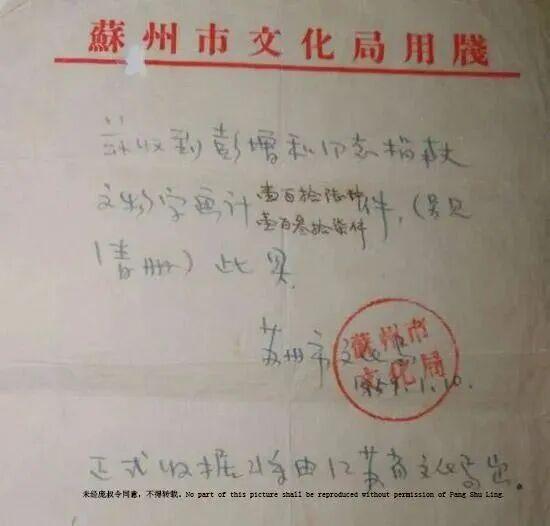 蘇州市文化局用牋
兹收到彭增和同志捐献
文物字画计壹百拾陆种
壹百叁拾柒件件,(另见
清册)此具.
苏州市文化局
蘇州市
文化局
1959.1.10.
正式收据将由江苏省文化局出.
未经庞叔令同意,不得转载. No part of this picture shall be reproduced without permission of Pang Shu Ling.